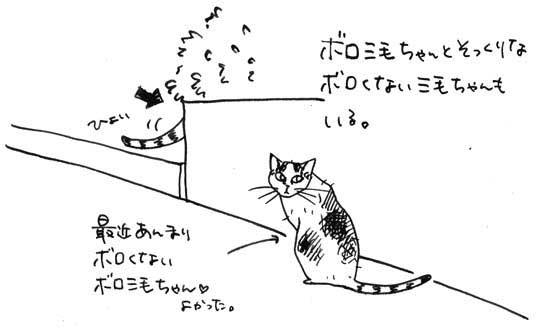 ボロ三毛ちゃんとそっくりな
ボロくない三毛ちゃんも
いる。
ひょい
最近あんまり
ボロくない
ボロ三毛ちゃん♡
よかった。